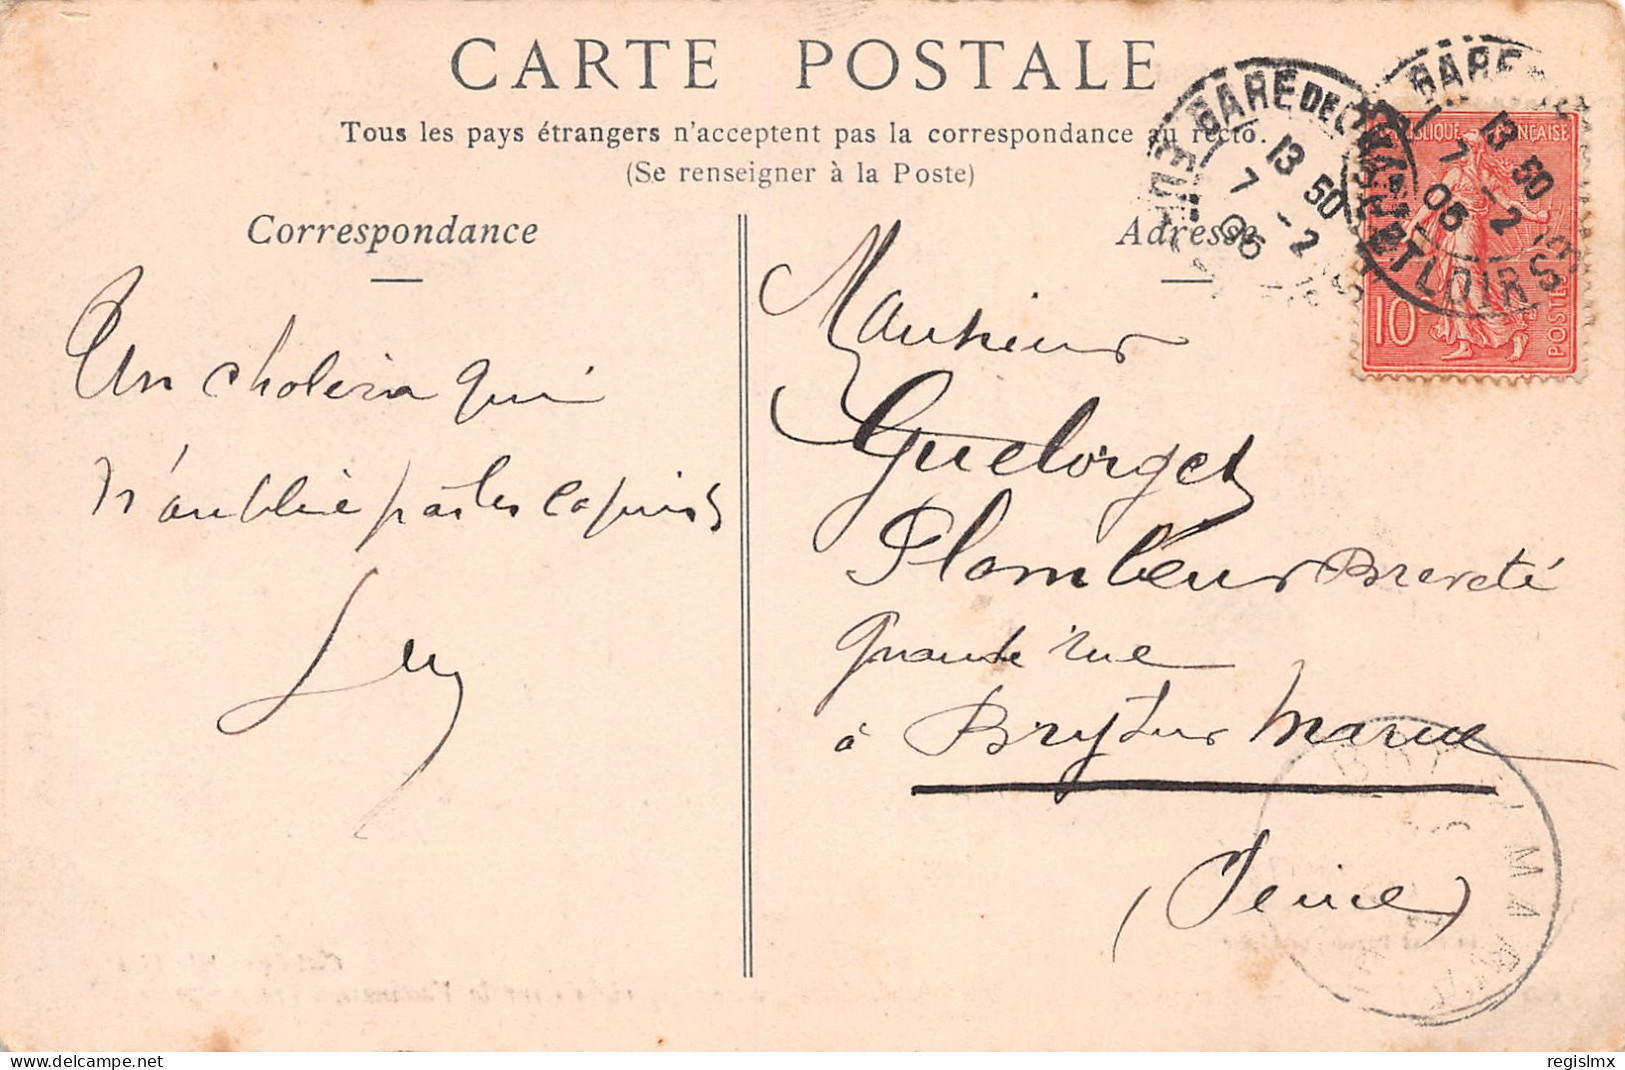 CARTE POSTALE
Tous les pays étrangers n'acceptent pas la correspondance au recto.
(Se renseigner à la Poste)
Correspondance
Adresse
GARE DE CHARTRES
EURE ET LOIR
13 50
7 - 2
05
GARE
13 50
7 - 2
05
ET LOIR
RÉPUBLIQUE FRANÇAISE
10
POSTES
Un choléra qui
n'oublie pas les copins
Monsieur
Guelorget
Plombeur Breveté
Grande rue
à Bry sur Marne
(Seine)
BRY S/ MARNE
regislmx